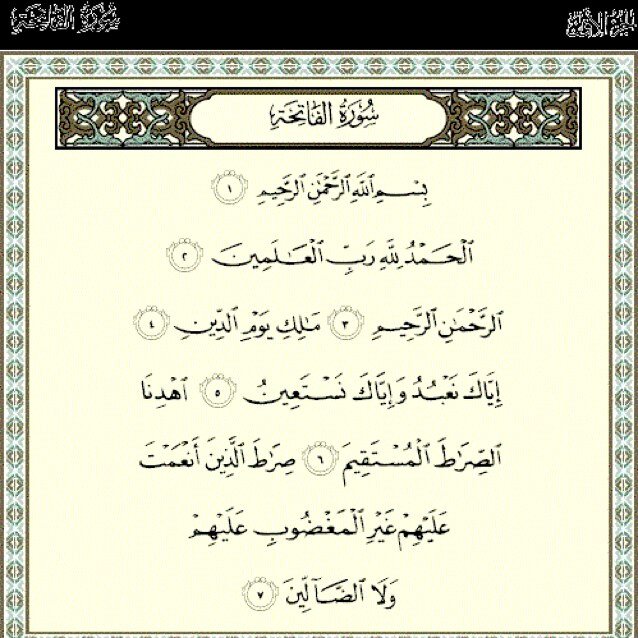 سُورَةُ الفَاتِحَةِ
الجزء الأول
سُورَةُ الفَاتِحَةِ
بِسْمِ ٱللَّهِ ٱلرَّحْمَٰنِ ٱلرَّحِيمِ ١
ٱلْحَمْدُ لِلَّهِ رَبِّ ٱلْعَٰلَمِينَ ٢
ٱلرَّحْمَٰنِ ٱلرَّحِيمِ ٣ مَٰلِكِ يَوْمِ ٱلدِّينِ ٤
إِيَّاكَ نَعْبُدُ وَإِيَّاكَ نَسْتَعِينُ ٥ ٱهْدِنَا
ٱلصِّرَٰطَ ٱلْمُسْتَقِيمَ ٦ صِرَٰطَ ٱلَّذِينَ أَنْعَمْتَ
عَلَيْهِمْ غَيْرِ ٱلْمَغْضُوبِ عَلَيْهِمْ
وَلَا ٱلضَّآلِّينَ ٧